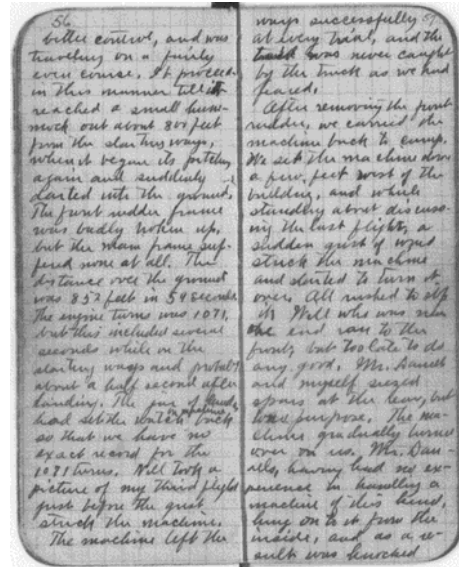 56
better control, and was
traveling on a fairly
even course. It proceeded
in this manner till it
reached a small hum-
mock out about 800 feet
from the starting ways,
when it began its pitching
again and suddenly
darted into the ground.
The front rudder frame
was badly broken up,
but the main frame suf-
fered none at all. The
distance over the ground
was 852 feet in 59 seconds.
The engine turns was 1071,
but this included several
seconds while on the
starting ways and probably
about a half second after
landing. The jar of landing
had set the watch on machine back
so that we have no
exact record for the
1071 turns. Will took a
picture of my third flight
just before the gust
struck the machine.
The machine left the
ways successfully
at every trial, and the
was never caught
by the truck as we had
feared.
After removing the front
rudder, we carried the
machine back to camp.
We set the machine down
a few feet west of the
building, and while
standing about discuss-
ing the last flight, a
sudden gust of wind
struck the machine
and started to turn it
over. All rushed to stop
it. Will who was near
the end ran to the
front, but too late to do
any good. Mr. Daniels
and myself seized
spars at the rear, but
to no purpose. The ma-
chine gradually turned
over on us. Mr. Dani-
els, having had no ex-
perience in handling a
machine of this kind,
hung on to it from the
inside, and as a re-
sult was knocked